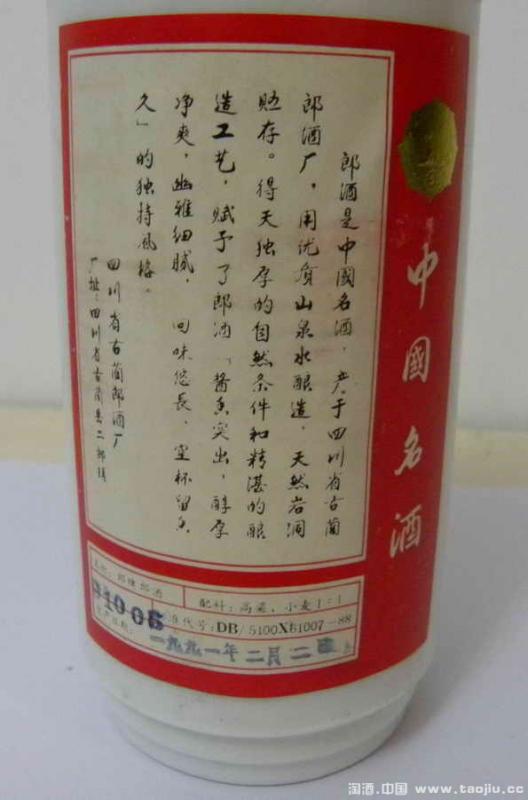 中國名酒
郎酒是中國名酒，产于四川省古蔺
郎酒厂，用优质山泉水酿造，天然岩洞
贮存。得天独厚的自然条件和精湛的酿
造工艺，赋予了郎酒「酱香突出，醇厚
净爽，幽雅细腻，回味悠長，空杯留香
久」的独特风格。
四川省古蔺郎酒厂
厂址：四川省古蔺县二郎镇
郎牌郎酒
配料：高粱、小麦1:1
准代号：DB/5100X61007-88
一九九一年二月二
淘酒.中国 www.taojiu.cc